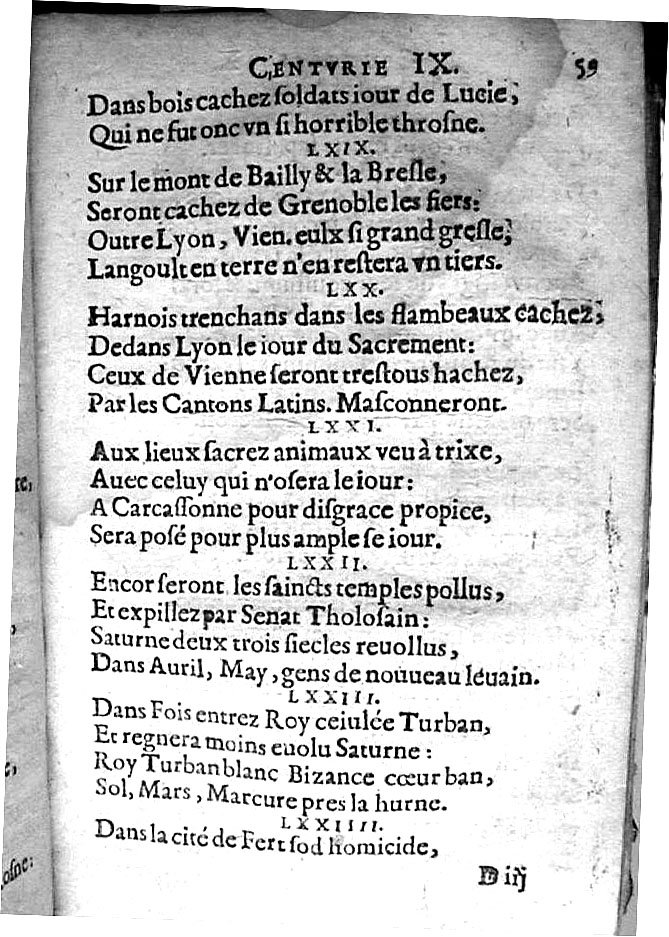 CENTVRIE IX. 59
Dans bois cachez ſoldats iour de Lucie,
Qui ne fut onc vn ſi horrible throſne.
LXIX.
Sur le mont de Bailly & la Breſle,
Seront cachez de Grenoble les fiers:
Outre Lyon, Vien. eulx ſi grand greſle,
Langoult en terre n'en reſtera vn tiers.
LXX.
Harnois trenchans dans les flambeaux cachez,
Dedans Lyon le iour du Sacrement:
Ceux de Vienne ſeront treſtous hachez,
Par les Cantons Latins. Maſconneront.
LXXI.
Aux lieux ſacrez animaux veu à trixe,
Auec celuy qui n'oſera le iour:
A Carcaſſonne pour diſgrace propice,
Sera poſé pour plus ample ſe iour.
LXXII.
Encor ſeront les ſaincts temples pollus,
Et expillez par Senat Tholoſain:
Saturne deux trois ſiecles reuollus,
Dans Auril, May, gens de nouueau leuain.
LXXIII.
Dans Fois entrez Roy ceiulée Turban,
Et regnera moins euolu Saturne:
Roy Turban blanc Bizance cœur ban,
Sol, Mars, Marcure pres la hurne.
LXXIIII.
Dans la cité de Fertſod homicide,
D iij